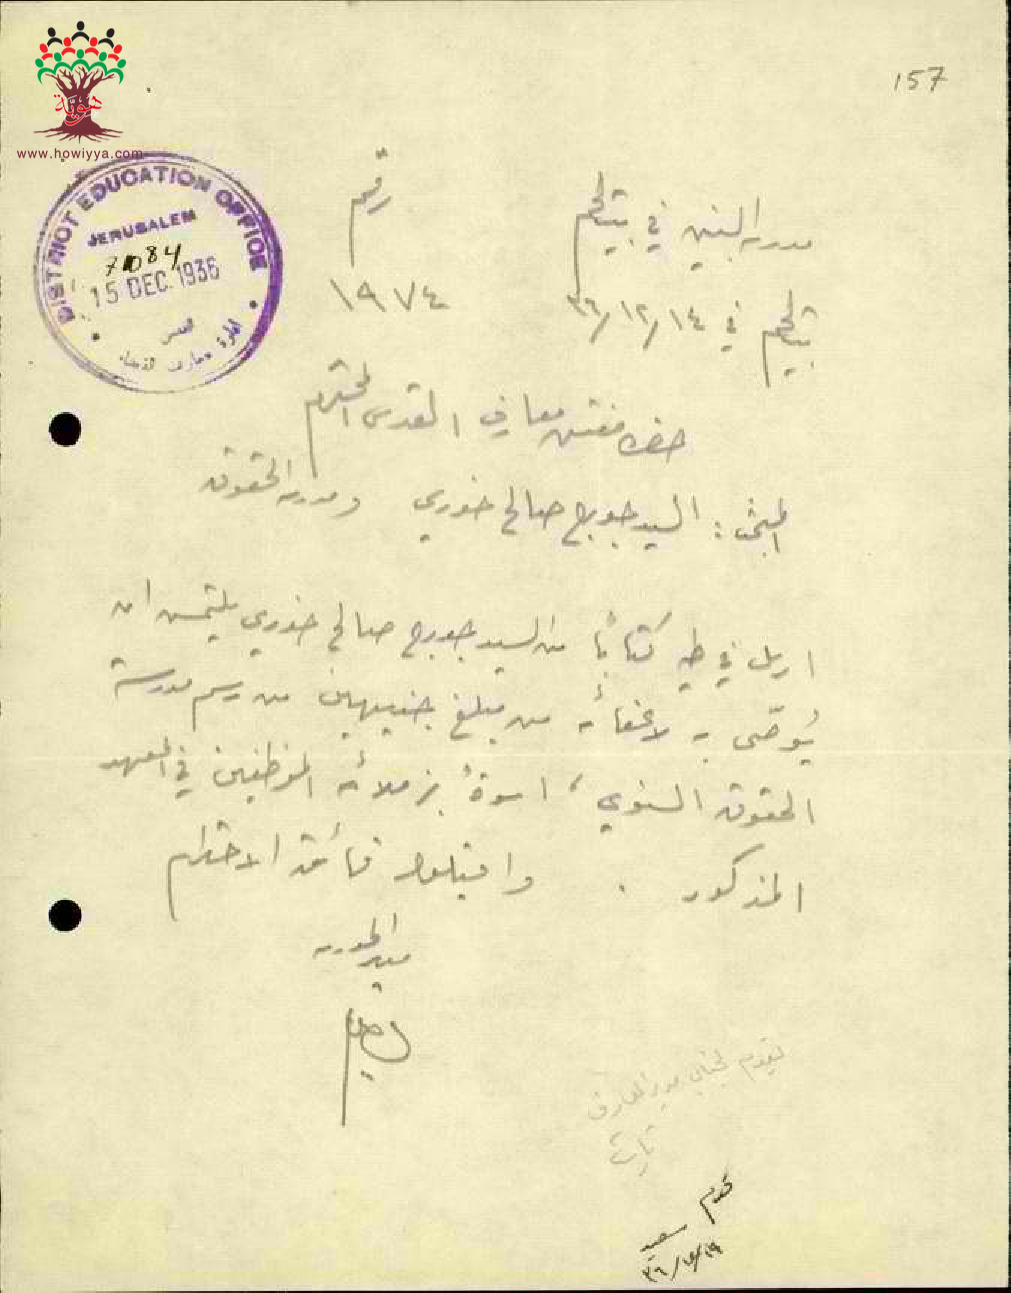 157
هوية
www.howiyya.com
DISTRICT EDUCATION OFFICE
JERUSALEM
7084
15 DEC. 1936
ادارة معارف القدس
مدرسة البنين في بيتلحم
رقم
بيتلحم في ١٤/١٢/٣٦
١٩٧٤
حضرة مفتش معارف القدس المحترم
المبحث : السيد جورج صالح خوري ومدرسة الحقوق
ارسل في طيه كتابًا من السيد جورج صالح خوري يلتمس ان
يُوصّى به لاعفائه من مبلغ جنيهين من رسم مدرسة
الحقوق السنوي ، اسوةً بزملائه الموظفين في المعهد
المذكور . واقبلوا فائق الاحترام
مدير المدرسة
تقدم لجناب مدير المعارف
قدم
سعيد